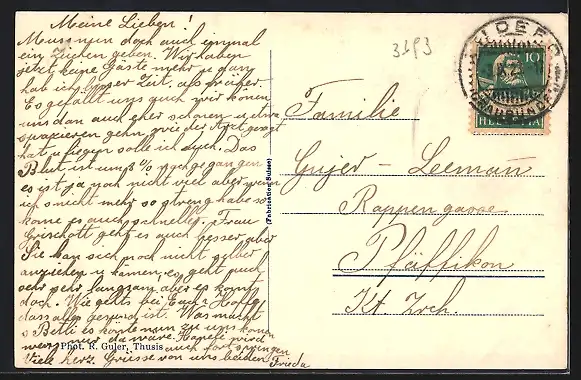 Meine Lieben!
Muss nun doch auch einmal
ein Zeichen geben. Wir haben
jetzt keine Gäste mehr
hab ich Zeit, als früher.
Es gefällt uns auch wir können
uns dan auch eher schonen u etwas
spazieren gehn, wie der Arzt gesagt
hat u liegen solle ich auch. Das
Blut ist ums % nachgegangen
es ist ja noch nicht viel aber wenn
ich's nicht mehr so streng habe so
kome es auch schneller. Frau
geht es auch besser aber
Sie kan sich noch nicht selber
anziehen u kämen, es geht auch
sehr sehr langsam aber es komt
doch. Wie gehts bei Euch? Hoffe
dass alles gesund ist. Was macht
s Betli es könte nun zu uns komen
wen's nur da wäre.
auch fort springen
Viele herz. Grüsse von uns beiden
Frieda
Phot. R. Guler, Thusis
(Fabrication Suisse)
3493
10
HELVETIA
Familie
Gujer-Leeman
Rappengasse
Pfäffikon
Kt. Zrch.